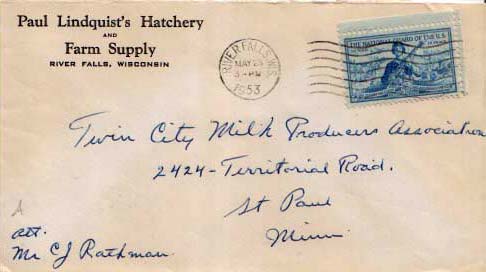 Paul Lindquist's Hatchery
AND
Farm Supply
RIVER FALLS, WISCONSIN
RIVER FALLS, WIS.
MAY 23
3-PM
1953
THE NATIONAL GUARD OF THE U.S.
Twin City Milk Producers Association
2424-Territorial Road.
St Paul
Minn
Att.
Mr CJ Rathman.